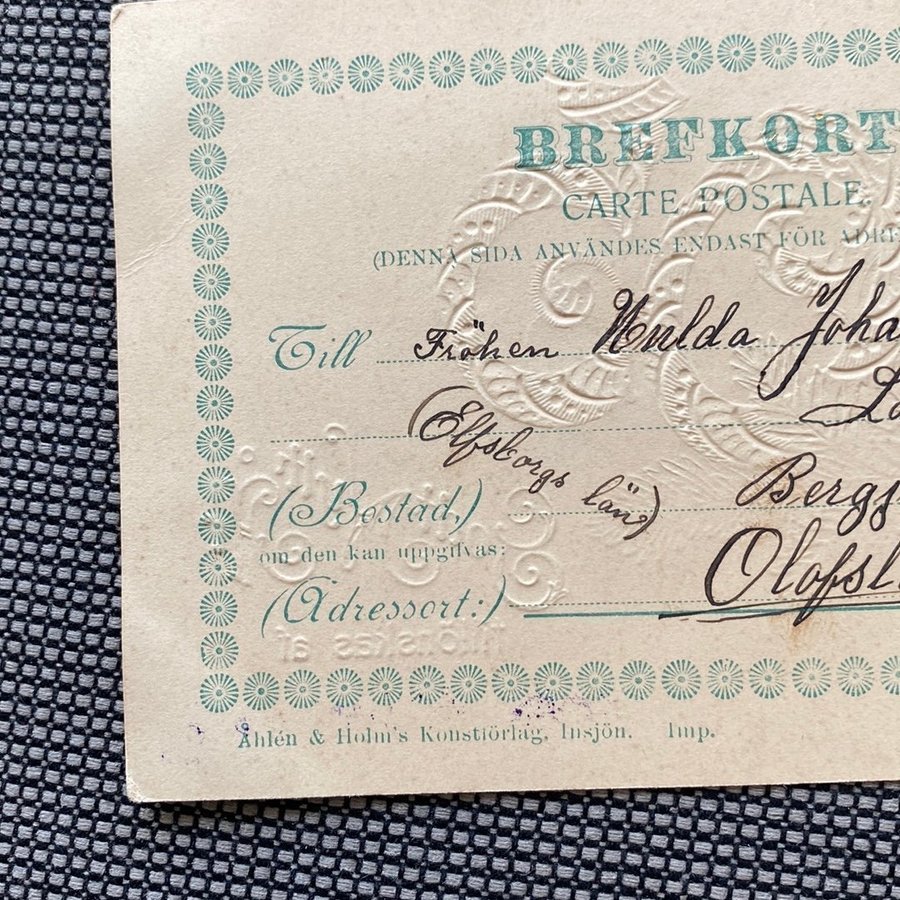 BREFKORT
CARTE POSTALE.
(DENNA SIDA ANVÄNDES ENDAST FÖR ADRE
Till Fröken Hulda Joha
(Elfsborgs län)
(Bostad,) Bergs
om den kan uppgifvas:
(Adressort:) Olofsl
Åhlén & Holm's Konstförlag, Insjön. Imp.